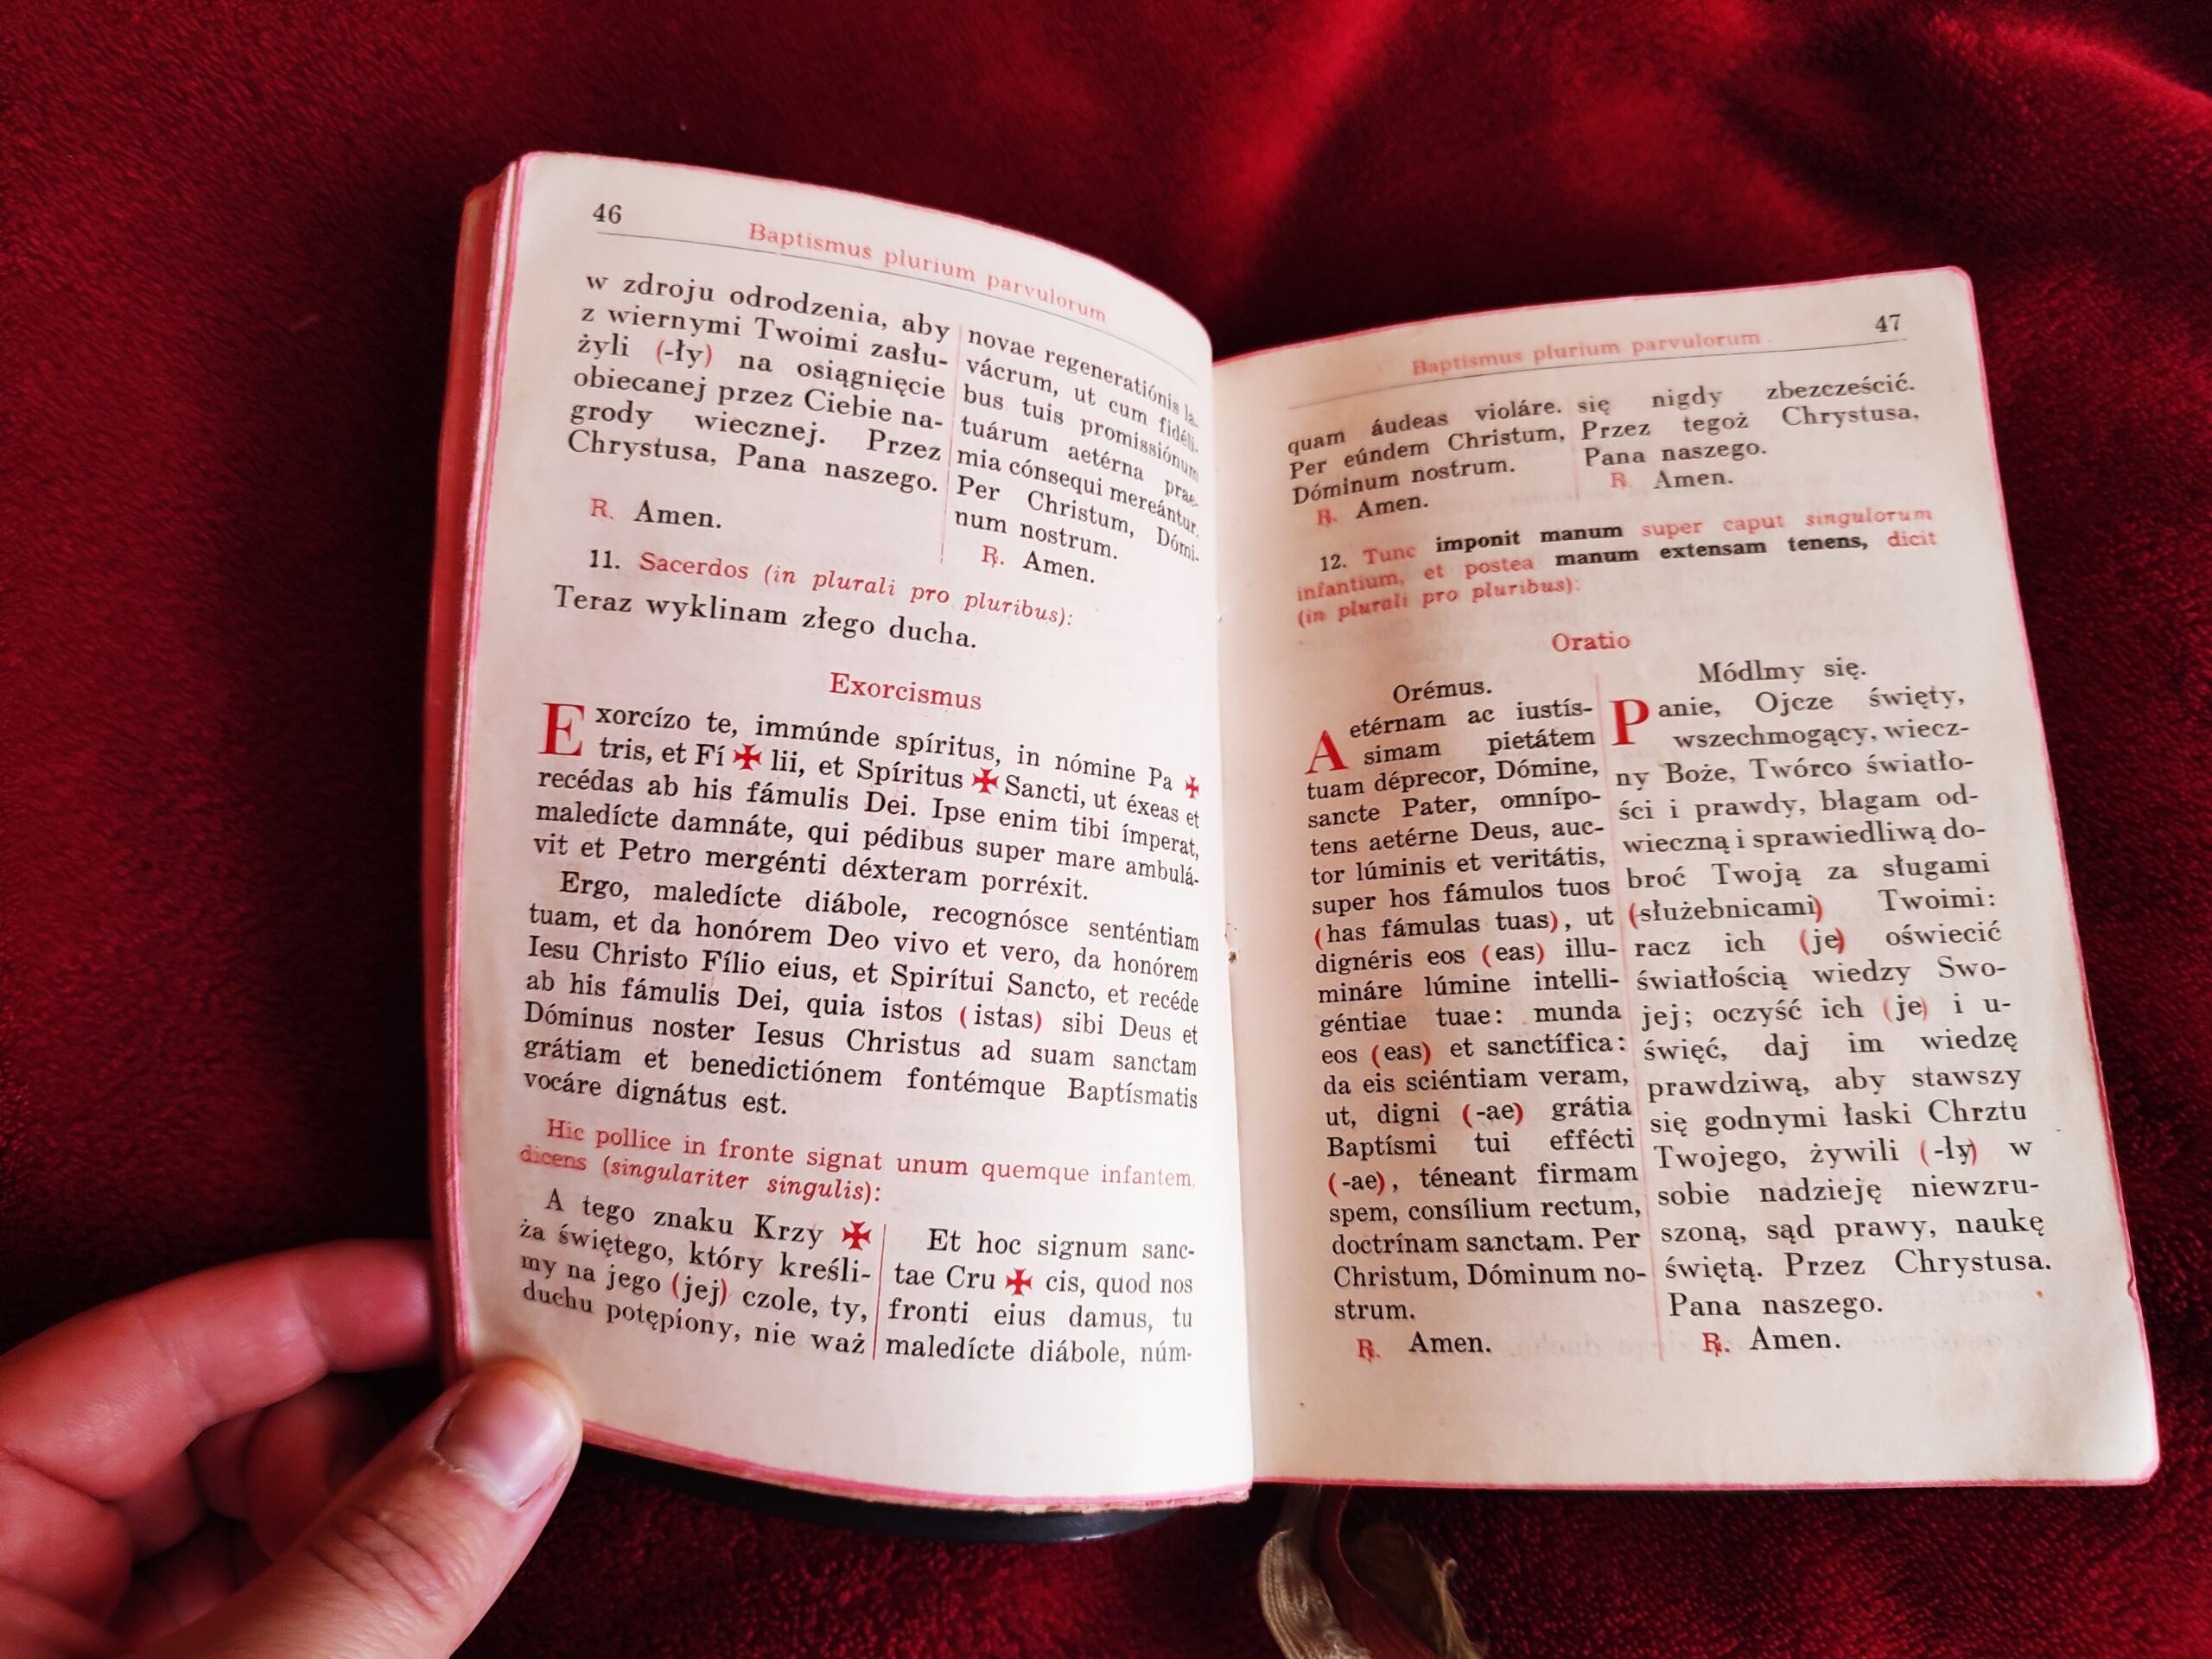 46
Baptismus plurium parvulorum
w zdroju odrodzenia, aby
z wiernymi Twoimi zasłu-
żyli (-ły) na osiągnięcie
obiecanej przez Ciebie na-
grody wiecznej. Przez
Chrystusa, Pana naszego.
℟. Amen.
novae regeneratiónis la-
vácrum, ut cum fidéli-
bus tuis promissiónum
tuárum aetérna prae-
mia cónsequi mereántur.
Per Christum, Dómi-
num nostrum.
℟. Amen.
11. Sacerdos (in plurali pro pluribus):
Teraz wyklinam złego ducha.
Exorcismus
Exorcízo te, immúnde spíritus, in nómine Pa ✠
tris, et Fí ✠ lii, et Spíritus ✠ Sancti, ut éxeas et
recédas ab his fámulis Dei. Ipse enim tibi ímperat,
maledícte damnáte, qui pédibus super mare ambulá-
vit et Petro mergénti déxteram porréxit.
Ergo, maledícte diábole, recognósce senténtiam
tuam, et da honórem Deo vivo et vero, da honórem
Iesu Christo Fílio eius, et Spirítui Sancto, et recéde
ab his fámulis Dei, quia istos (istas) sibi Deus et
Dóminus noster Iesus Christus ad suam sanctam
grátiam et benedictiónem fontémque Baptísmatis
vocáre dignátus est.
Hic pollice in fronte signat unum quemque infantem,
dicens (singulariter singulis):
A tego znaku Krzy ✠
ża świętego, który kreśli-
my na jego (jej) czole, ty,
duchu potępiony, nie waż
Et hoc signum sanc-
tae Cru ✠ cis, quod nos
fronti eius damus, tu
maledícte diábole, núm-
47
Baptismus plurium parvulorum
quam áudeas violáre.
Per eúndem Christum,
Dóminum nostrum.
℟. Amen.
się nigdy zbezcześcić.
Przez tegoż Chrystusa,
Pana naszego.
℟. Amen.
12. Tunc imponit manum super caput singulorum
infantium, et postea manum extensam tenens, dicit
(in plurali pro pluribus):
Oratio
Orémus.
Aetérnam ac iustís-
simam pietátem
tuam déprecor, Dómine,
sancte Pater, omnípo-
tens aetérne Deus, auc-
tor lúminis et veritátis,
super hos fámulos tuos
(has fámulas tuas), ut
dignéris eos (eas) illu-
mináre lúmine intelli-
géntiae tuae: munda
eos (eas) et sanctífica:
da eis sciéntiam veram,
ut, digni (-ae) grátia
Baptísmi tui effécti
(-ae), téneant firmam
spem, consílium rectum,
doctrínam sanctam. Per
Christum, Dóminum no-
strum.
℟. Amen.
Módlmy się.
Panie, Ojcze święty,
wszechmogący, wiecz-
ny Boże, Twórco światło-
ści i prawdy, błagam od-
wieczną i sprawiedliwą do-
broć Twoją za sługami
(służebnicami) Twoimi:
racz ich (je) oświecić
światłością wiedzy Swo-
jej; oczyść ich (je) i u-
święć, daj im wiedzę
prawdziwą, aby stawszy
się godnymi łaski Chrztu
Twojego, żywili (-ły) w
sobie nadzieję niewzru-
szoną, sąd prawy, naukę
świętą. Przez Chrystusa.
Pana naszego.
℟. Amen.